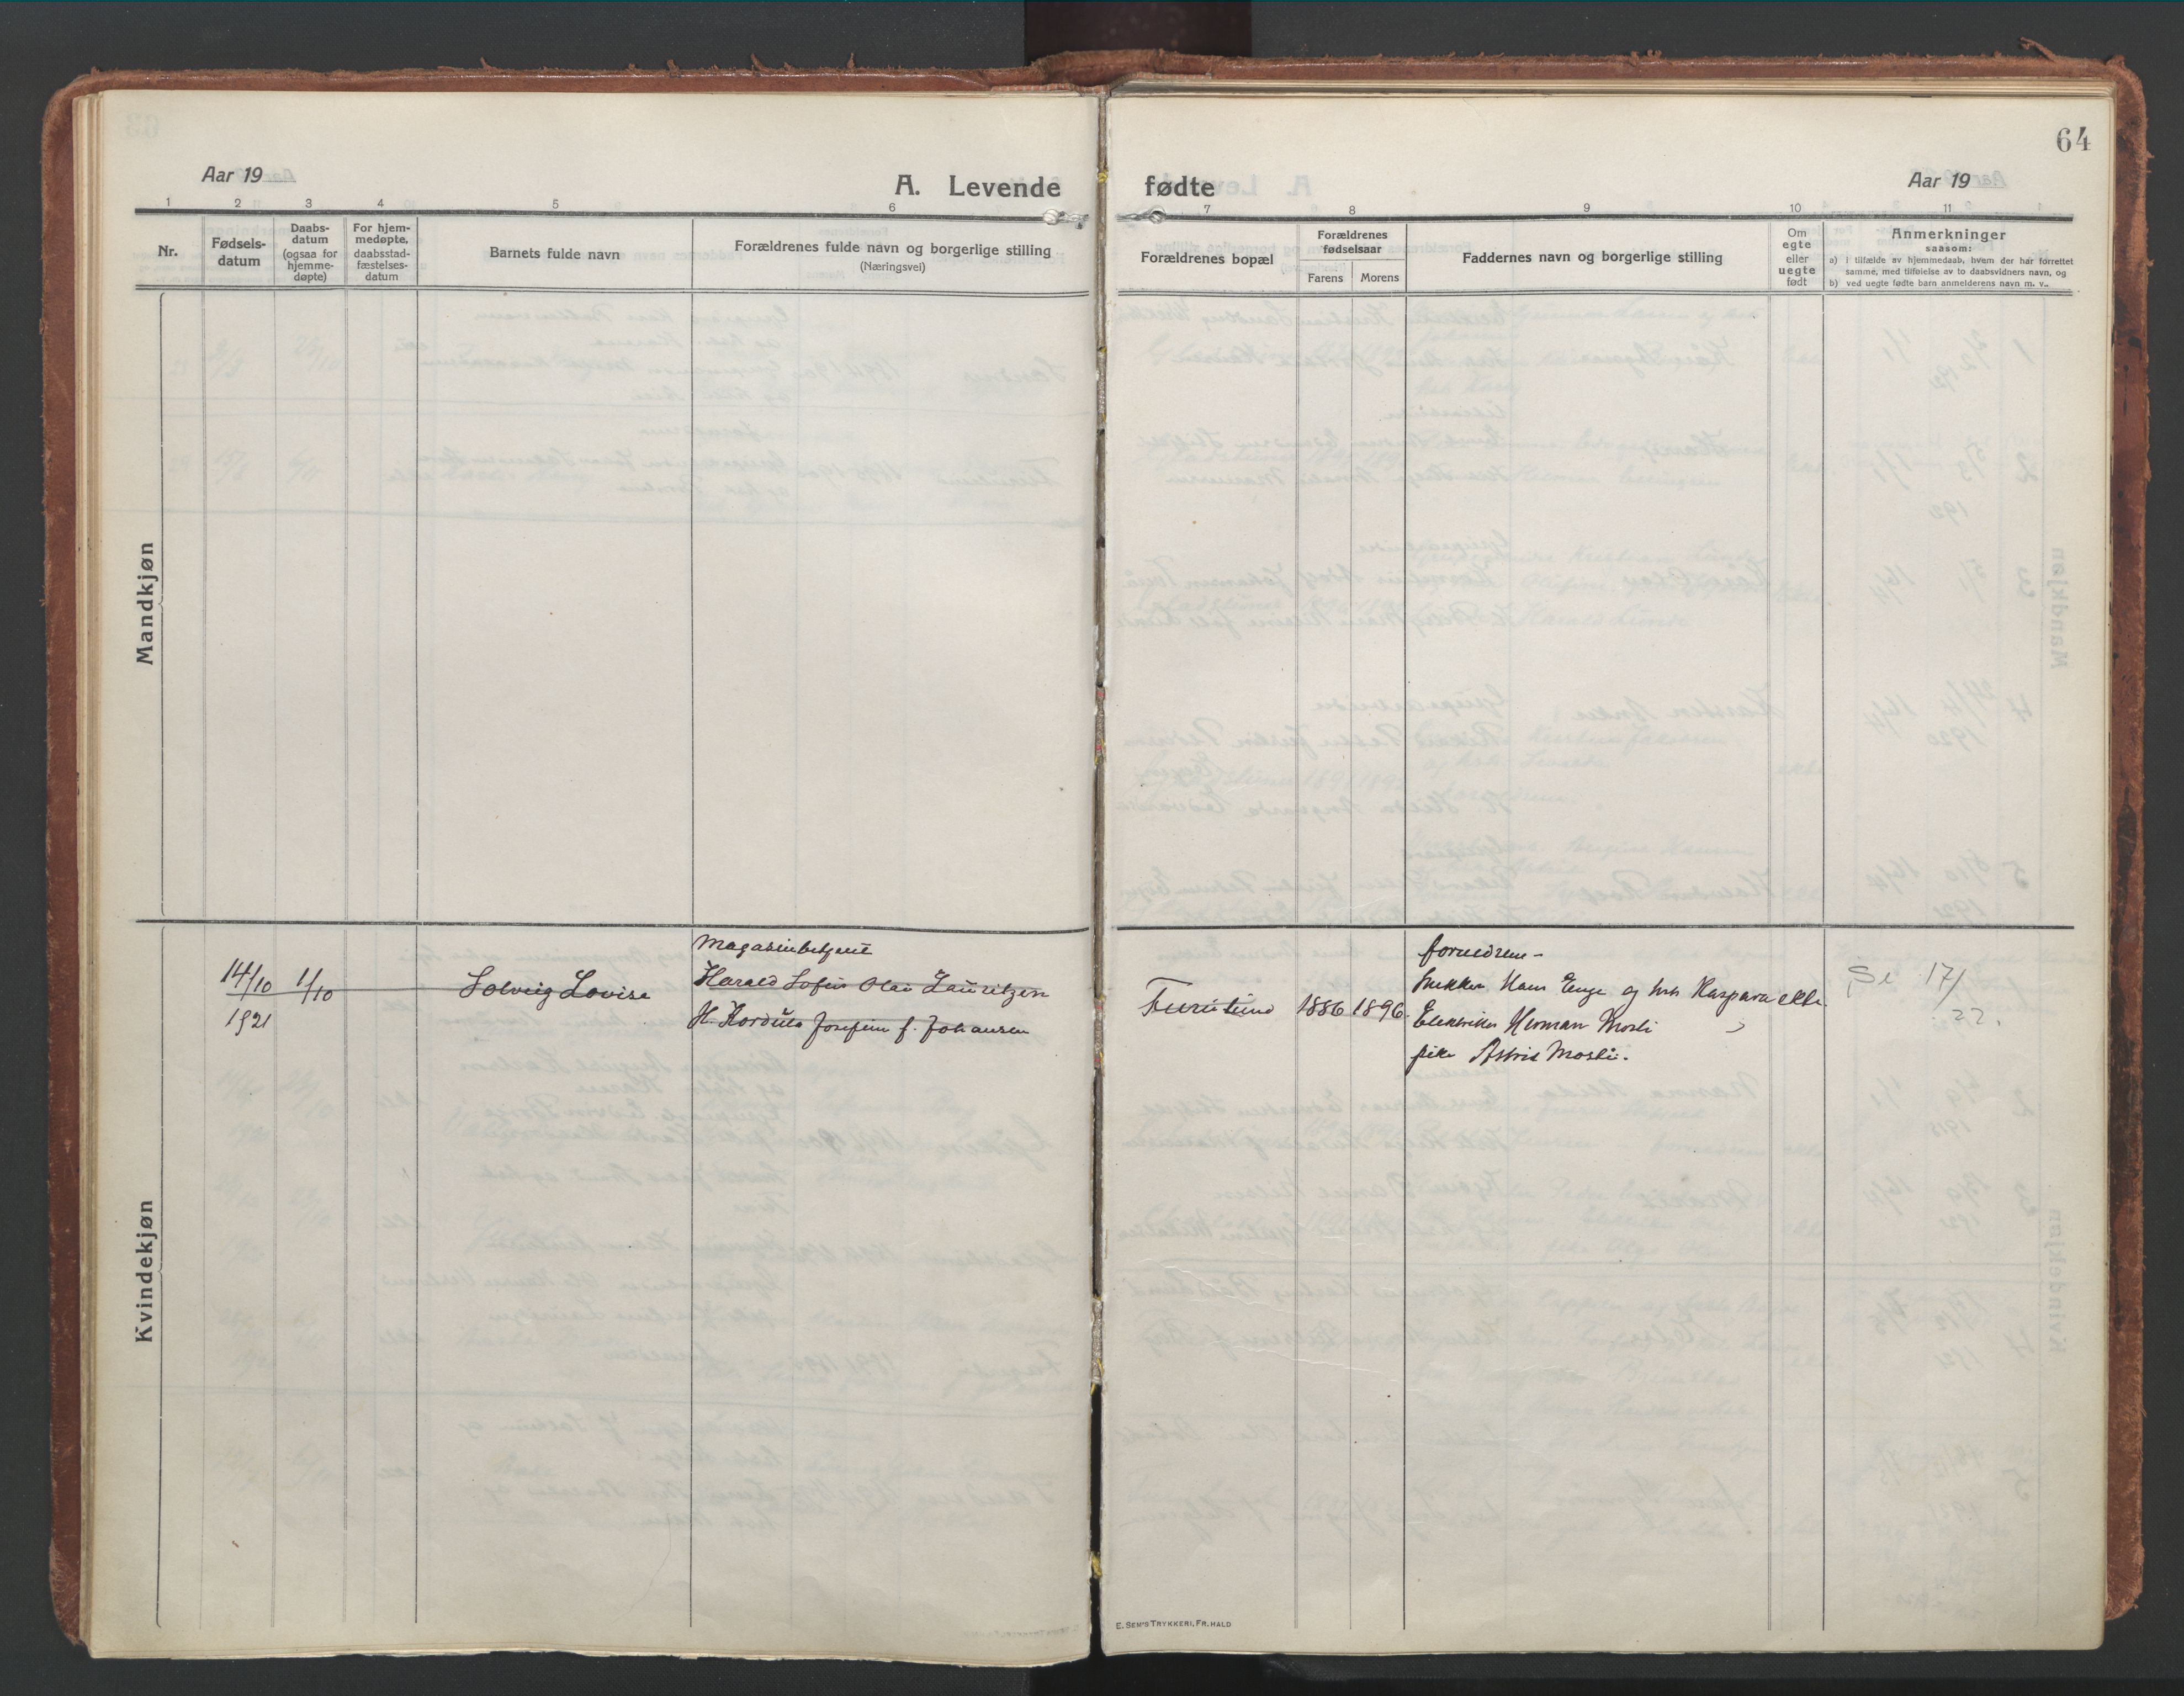 64
Aar 19
A. Levende
fødte
Aar 19
1 2 3 4 5 6 7 8 9 10 11
Nr.
Fødsels-
datum
Daabs-
datum
(ogsaa for
hjemme-
døpte)
For hjem-
medøpte,
daabsstad-
fæstelses-
datum
Barnets fulde navn
Forældrenes fulde navn og borgerlige stilling
(Næringsvei)
Forældrenes bopæl
Forældrenes
fødselsaar
Farens Morens
Faddernes navn og borgerlige stilling
Om
egte
eller
uegte
født
Anmerkninger
saasom:
a) i tilfælde av hjemmedaab, hvem der har forrettet
samme, med tilføielse av to daabsvidners navn, og
b) ved uegte fødte barn anmelderens navn m. v..
Mandkjøn
Kvindekjøn
14/10 1/10
1921
Solveig Lovise
Magasinbetjent
Harald Sofus Olai Lauritzen
H. Kordula Josefine f. Johansen
1886 1896
forældrene
Snekker Hans Enge og hst Kaspara ekte.
Elektriker Herman Mosli
pike Astrid Mosli.
Se 17/
22.
E. SEM'S TRYKKERI, FR. HALD